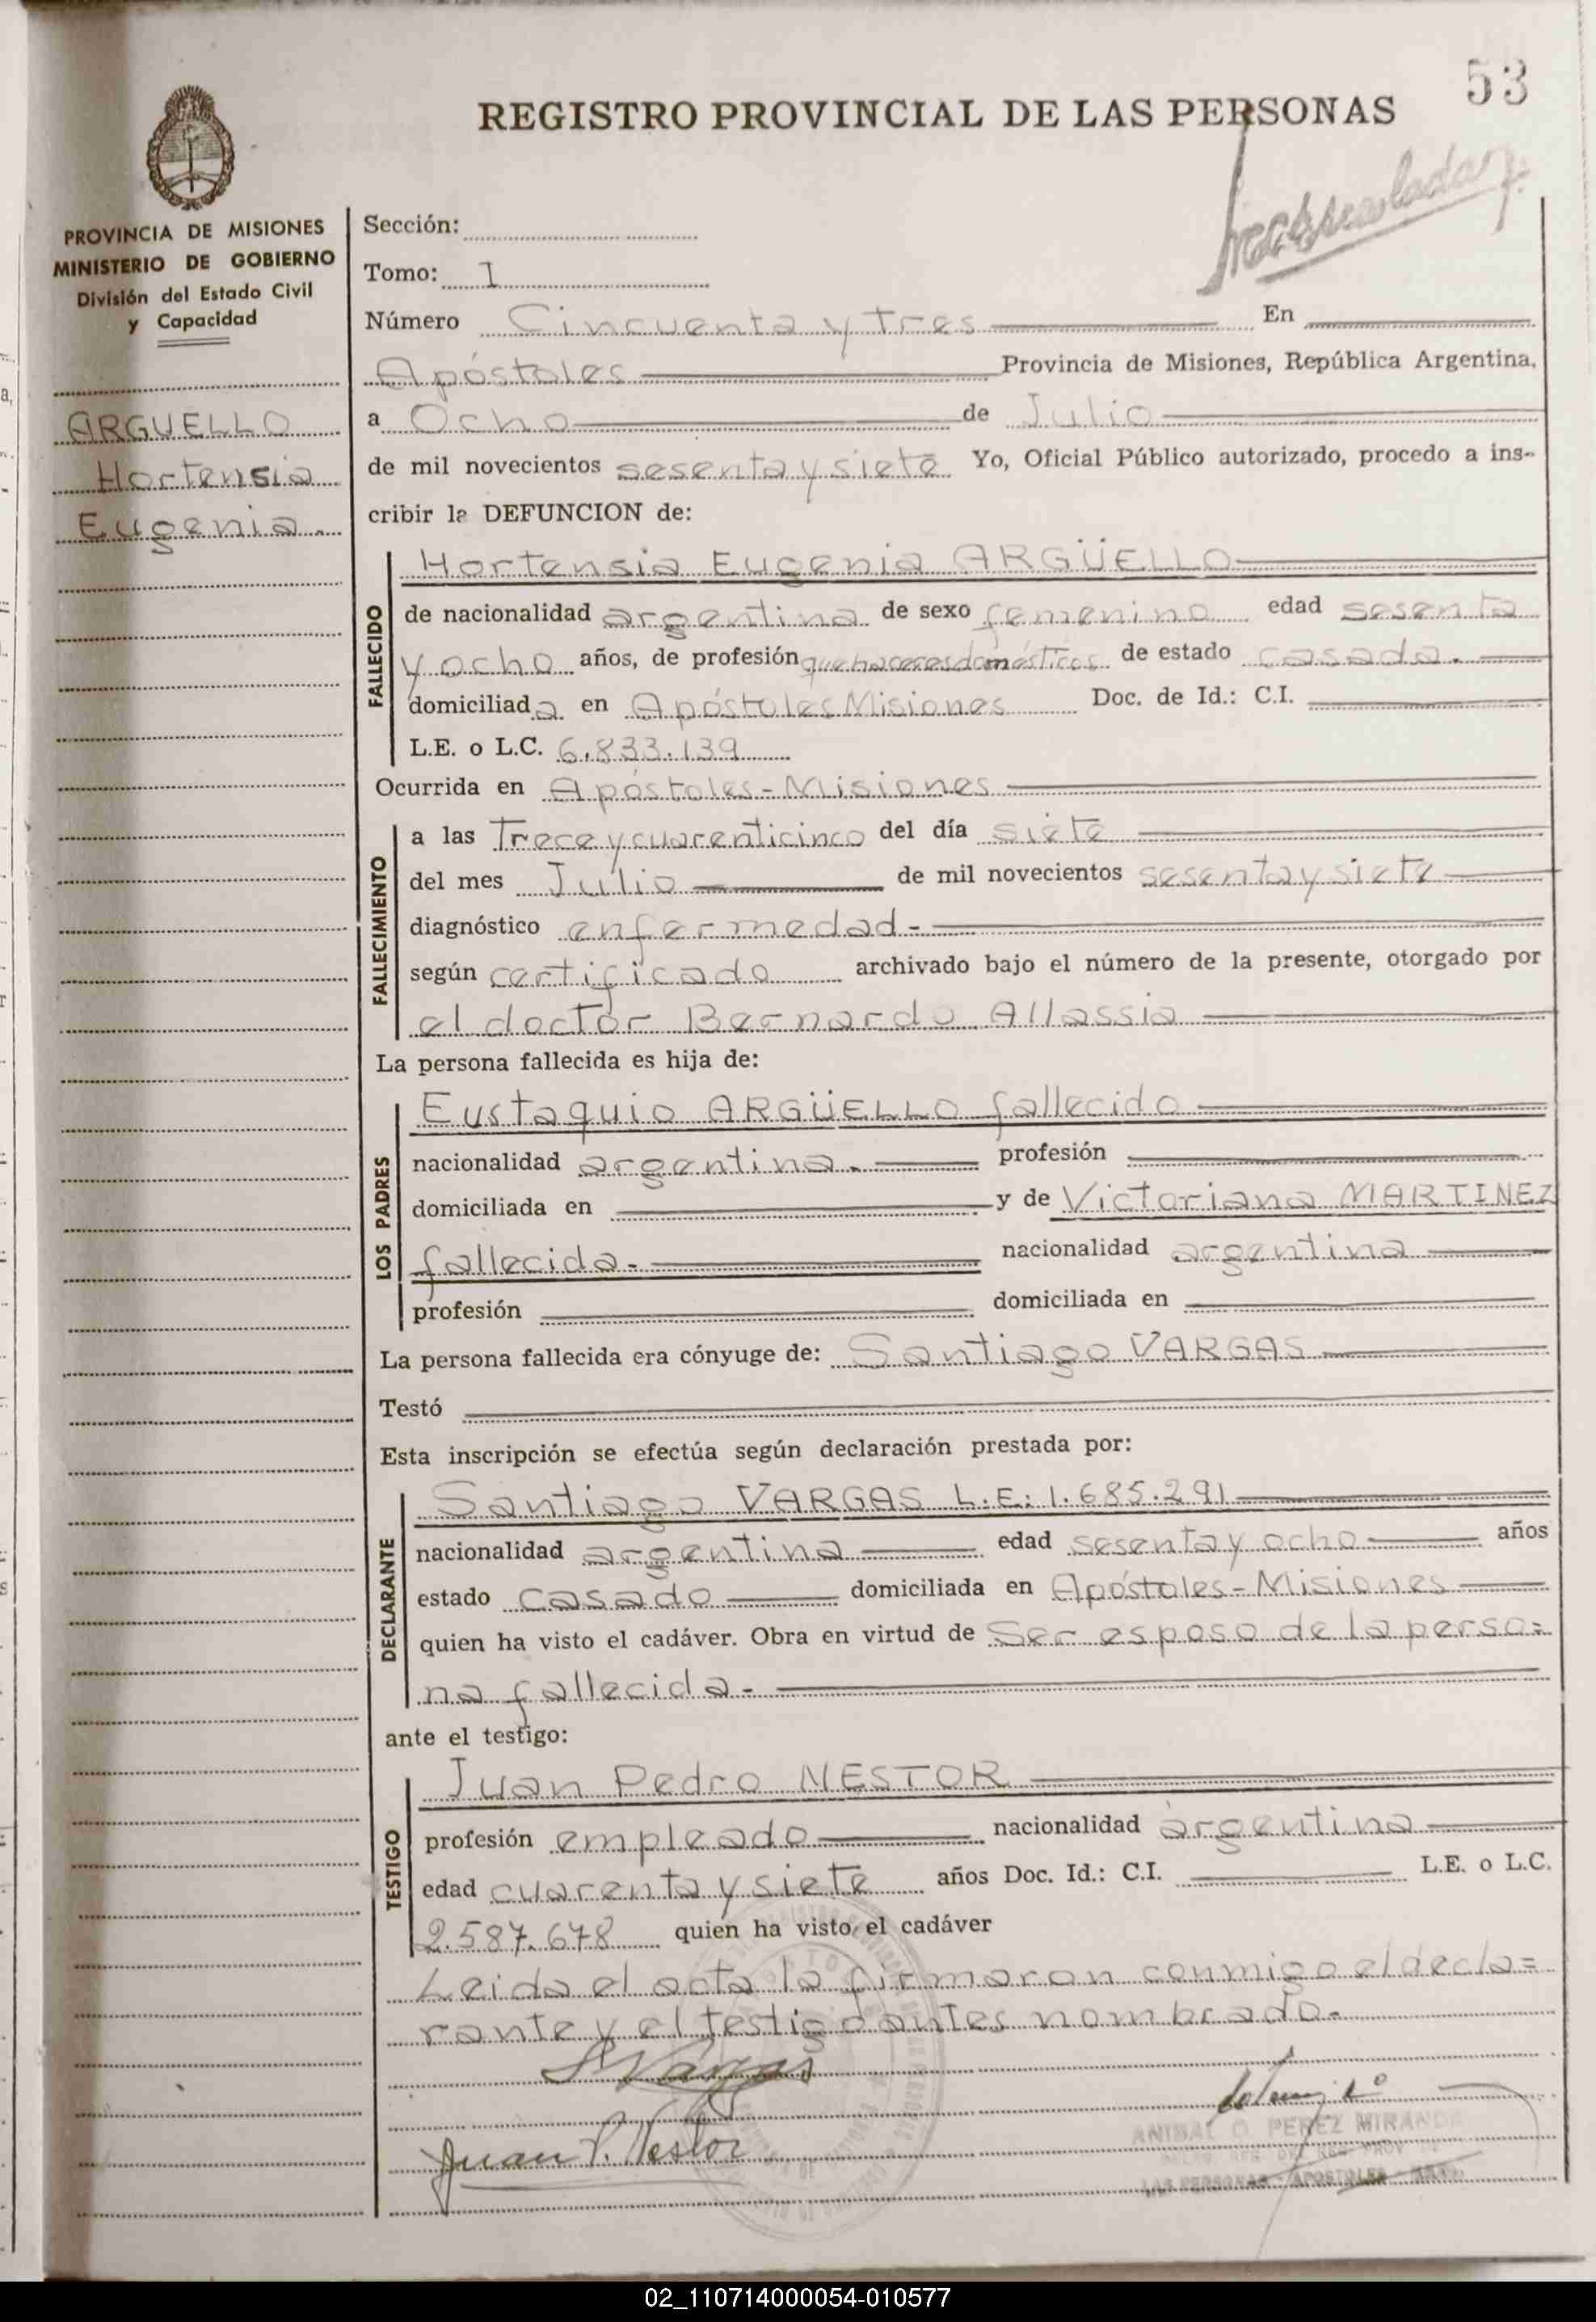 53
REGISTRO PROVINCIAL DE LAS PERSONAS
PROVINCIA DE MISIONES
MINISTERIO DE GOBIERNO
División del Estado Civil
y Capacidad
ARGUELLO
Hortensia
Eugenia.
Sección:
Tomo: 1
Número Cincuenta y Tres En
Apóstoles Provincia de Misiones, República Argentina,
a Ocho de Julio
de mil novecientos sesenta y siete Yo, Oficial Público autorizado, procedo a ins-
cribir la DEFUNCION de:
FALLECIDO
Hortensia Eugenia ARGÜELLO
de nacionalidad argentina de sexo femenino edad sesenta
y ocho años, de profesión quehaceres domésticos de estado casada.
domiciliada en Apóstoles Misiones Doc. de Id.: C.I.
L.E. o L.C. 6.833.139
Ocurrida en Apóstoles-Misiones
FALLECIMIENTO
a las Trece y cuarenticinco del día siete
del mes Julio de mil novecientos sesenta y siete
diagnóstico enfermedad-
según certificado archivado bajo el número de la presente, otorgado por
el doctor Bernardo Allassia
La persona fallecida es hija de:
LOS PADRES
Eustaquio ARGÜELLO fallecido
nacionalidad argentina. profesión
domiciliada en y de Victoriana MARTINEZ
fallecida- nacionalidad argentina
profesión domiciliada en
La persona fallecida era cónyuge de: Santiago VARGAS
Testó
Esta inscripción se efectúa según declaración prestada por:
DECLARANTE
Santiago VARGAS L.E: 1.685.291
nacionalidad argentina edad sesenta y ocho años
estado casado domiciliada en Apóstoles-Misiones
quien ha visto el cadáver. Obra en virtud de Ser esposo de la perso=
na fallecida-
ante el testigo:
TESTIGO
Juan Pedro NESTOR
profesión empleado nacionalidad argentina
edad cuarenta y siete años Doc. Id.: C.I. L.E. o L.C.
2.587.678 quien ha visto el cadáver
Leida el acta la firmaron conmigo el decla=
rante y el testigo antes nombrado.
SVargas
Juan P. Nestor
ANIBAL O. PEREZ MIRANDA
LAS PERSONAS - APOSTOLES
02_110714000054-010577